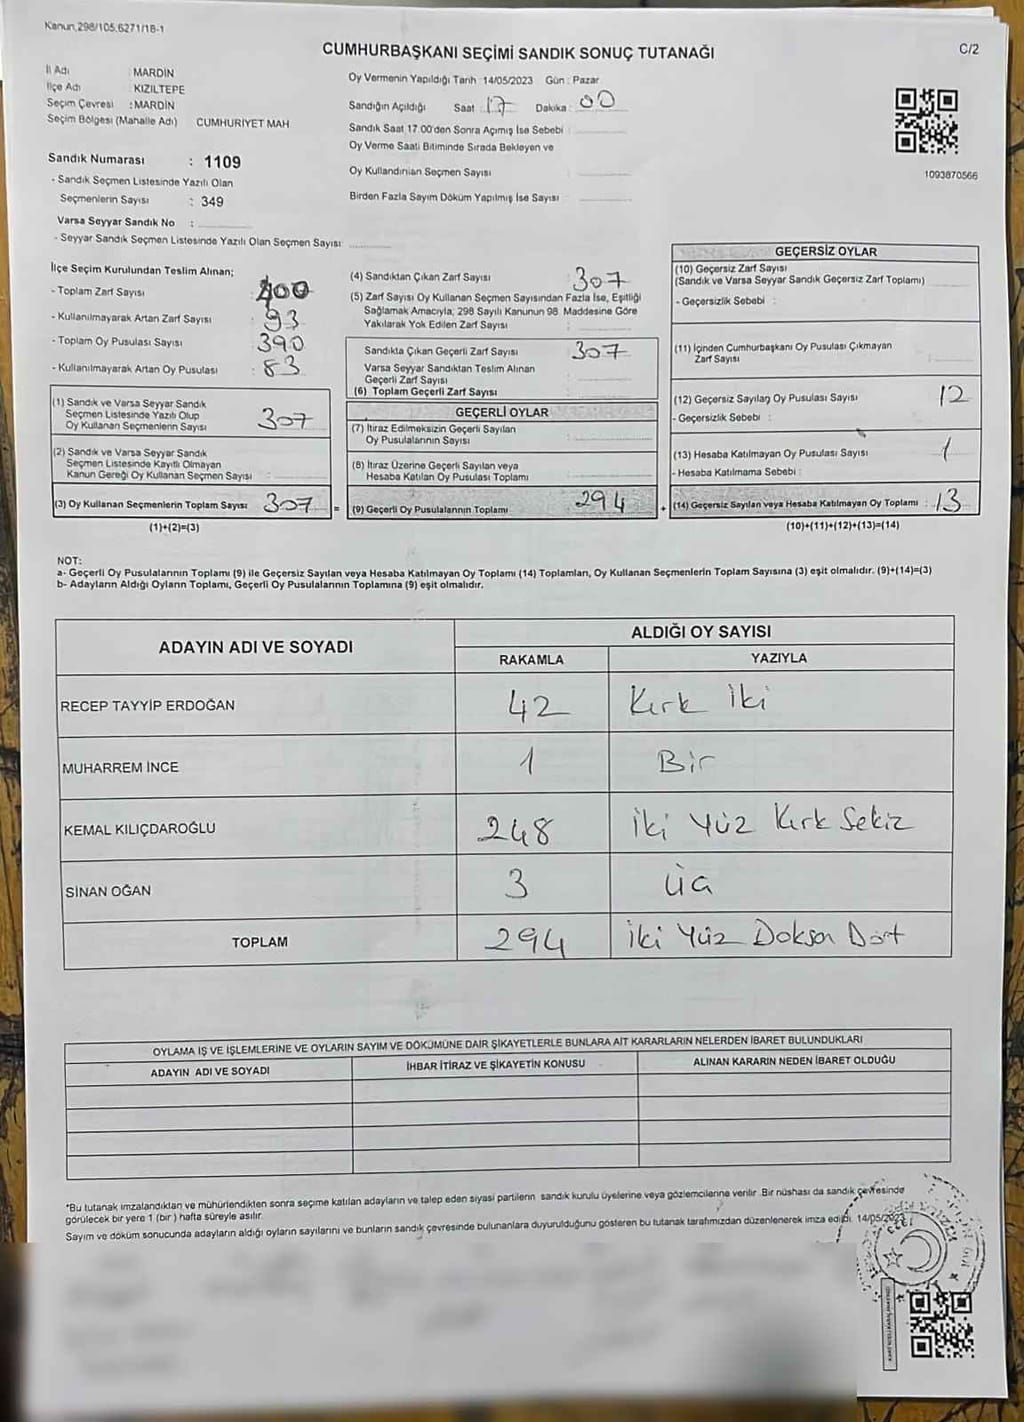 Kanun,298/105,6271/18-1
CUMHURBAŞKANI SEÇİMİ SANDIK SONUÇ TUTANAĞI
C/2
İl Adı : MARDİN
İlçe Adı : KIZILTEPE
Seçim Çevresi : MARDİN
Seçim Bölgesi (Mahalle Adı) CUMHURİYET MAH
Sandık Numarası : 1109
- Sandık Seçmen Listesinde Yazılı Olan
Seçmenlerin Sayısı : 349
Varsa Seyyar Sandık No :
- Seyyar Sandık Seçmen Listesinde Yazılı Olan Seçmen Sayısı:
Oy Vermenin Yapıldığı Tarih :14/05/2023 Gün : Pazar
Sandığın Açıldığı Saat : 17 Dakika : 00
Sandık Saat 17.00'den Sonra Açımış İse Sebebi :
Oy Verme Saati Bitiminde Sırada Bekleyen ve
Oy Kullandırılan Seçmen Sayısı :
Birden Fazla Sayım Döküm Yapılmış İse Sayısı :
1093870566
İlçe Seçim Kurulundan Teslim Alınan;
- Toplam Zarf Sayısı : 400
- Kullanılmayarak Artan Zarf Sayısı : 93
- Toplam Oy Pusulası Sayısı : 390
- Kullanılmayarak Artan Oy Pusulası : 83
(1) Sandık ve Varsa Seyyar Sandık
Seçmen Listesinde Yazılı Olup
Oy Kullanan Seçmenlerin Sayısı : 307
(2) Sandık ve Varsa Seyyar Sandık
Seçmen Listesinde Kayıtlı Olmayan
Kanun Gereği Oy Kullanan Seçmen Sayısı :
(3) Oy Kullanan Seçmenlerin Toplam Sayısı: 307
(1)+(2)=(3)
(4) Sandıktan Çıkan Zarf Sayısı : 307
(5) Zarf Sayısı Oy Kullanan Seçmen Sayısından Fazla İse, Eşitliği
Sağlamak Amacıyla, 298 Sayılı Kanunun 98. Maddesine Göre
Yakılarak Yok Edilen Zarf Sayısı :
Sandıkta Çıkan Geçerli Zarf Sayısı : 307
Varsa Seyyar Sandıktan Teslim Alınan
Geçerli Zarf Sayısı :
(6) Toplam Geçerli Zarf Sayısı :
GEÇERLİ OYLAR
(7) İtiraz Edilmeksizin Geçerli Sayılan
Oy Pusulalarının Sayısı :
(8) İtiraz Üzerine Geçerli Sayılan veya
Hesaba Katılan Oy Pusulası Toplamı :
= (9) Geçerli Oy Pusulalarının Toplamı : 294
GEÇERSİZ OYLAR
(10) Geçersiz Zarf Sayısı
(Sandık ve Varsa Seyyar Sandık Geçersiz Zarf Toplamı) :
- Geçersizlik Sebebi :
(11) İçinden Cumhurbaşkanı Oy Pusulası Çıkmayan
Zarf Sayısı :
(12) Geçersiz Sayılan Oy Pusulası Sayısı : 12
- Geçersizlik Sebebi :
(13) Hesaba Katılmayan Oy Pusulası Sayısı : 1
- Hesaba Katılmama Sebebi :
+ (14) Geçersiz Sayılan veya Hesaba Katılmayan Oy Toplamı : 13
(10)+(11)+(12)+(13)=(14)
NOT:
a- Geçerli Oy Pusulalarının Toplamı (9) ile Geçersiz Sayılan veya Hesaba Katılmayan Oy Toplamı (14) Toplamları, Oy Kullanan Seçmenlerin Toplam Sayısına (3) eşit olmalıdır. (9)+(14)=(3)
b- Adayların Aldığı Oyların Toplamı, Geçerli Oy Pusulalarının Toplamına (9) eşit olmalıdır.
ADAYIN ADI VE SOYADI
ALDIĞI OY SAYISI
RAKAMLA YAZIYLA
RECEP TAYYİP ERDOĞAN 42 Kırk İki
MUHARREM İNCE 1 Bir
KEMAL KILIÇDAROĞLU 248 İki Yüz Kırk Sekiz
SİNAN OĞAN 3 üç
TOPLAM 294 İki Yüz Doksan Dört
OYLAMA İŞ VE İŞLEMLERİNE VE OYLARIN SAYIM VE DÖKÜMÜNE DAİR ŞİKAYETLERLE BUNLARA AİT KARARLARIN NELERDEN İBARET BULUNDUKLARI
ADAYIN ADI VE SOYADI İHBAR İTİRAZ VE ŞİKAYETİN KONUSU ALINAN KARARIN NEDEN İBARET OLDUĞU
*Bu tutanak imzalandıktan ve mühürlendikten sonra seçime katılan adayların ve talep eden siyasi partilerin sandık kurulu üyelerine veya gözlemcilerine verilir. Bir nüshası da sandık çevresinde
görülecek bir yere 1 (bir) hafta süreyle asılır.
Sayım ve döküm sonucunda adayların aldığı oyların sayılarını ve bunların sandık çevresinde bulunanlara duyurulduğunu gösteren bu tutanak tarafımızdan düzenlenerek imza edildi. 14/05/2023